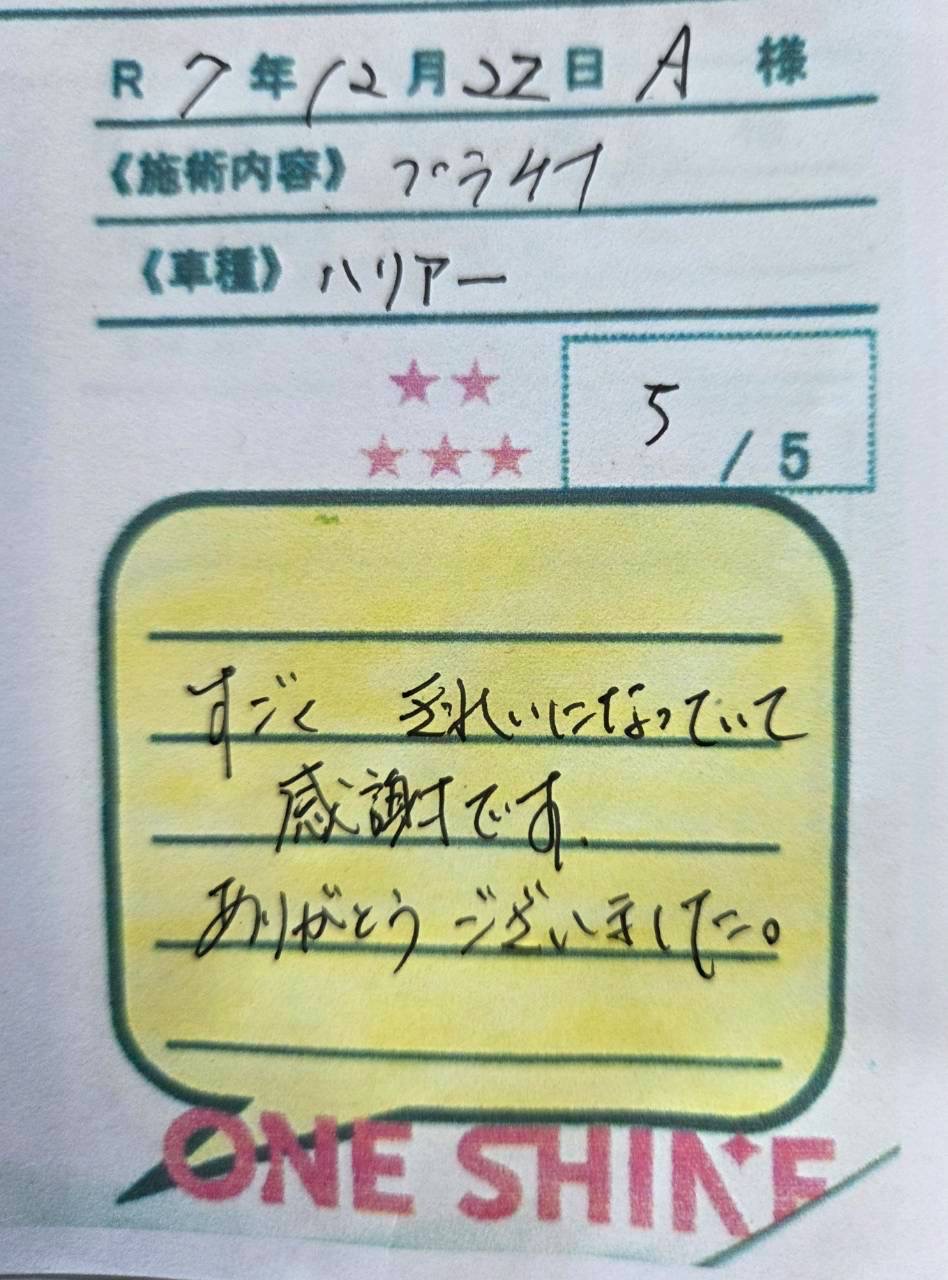 R 7年12月22日 A 様
《施術内容》 プラチナ
《車種》 ハリアー
5 / 5
すごく きれいになっていて
感謝です.
ありがとうございました。
ONE SHINE